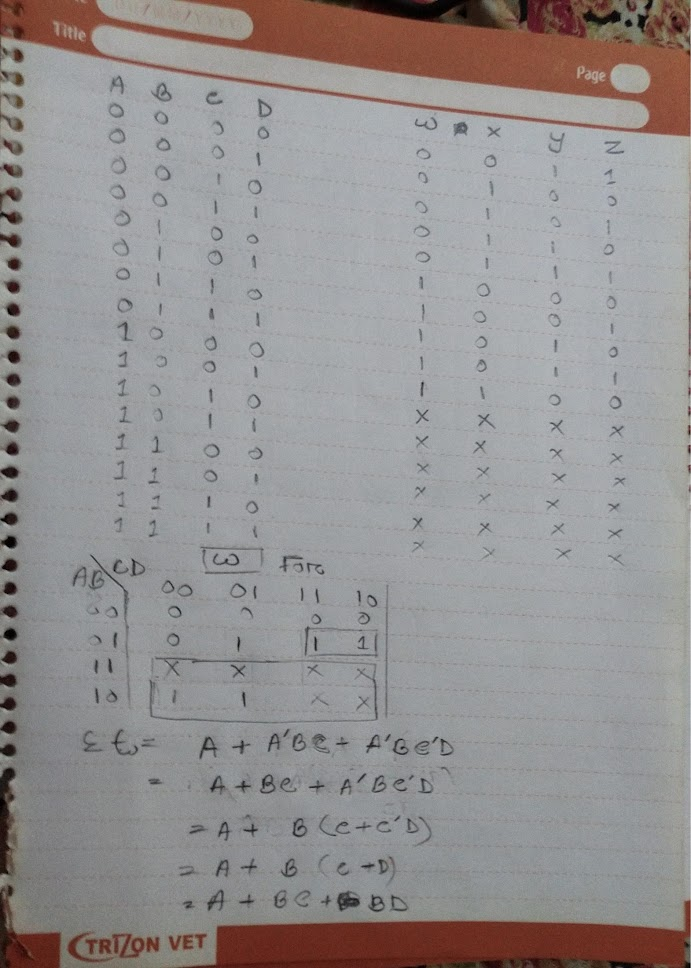 DD/MM/YYYY
Title
Page
A B C D w x y z
0 0 0 0 0 0 1 1
0 0 0 1 0 1 0 0
0 0 1 0 0 1 0 1
0 0 1 1 0 1 1 0
0 1 0 0 0 1 1 1
0 1 0 1 1 0 0 0
0 1 1 0 1 0 0 1
0 1 1 1 1 0 1 0
1 0 0 0 1 0 1 1
1 0 0 1 1 1 0 0
1 0 1 0 x x x x
1 0 1 1 x x x x
1 1 0 0 x x x x
1 1 0 1 x x x x
1 1 1 0 x x x x
1 1 1 1 x x x x
ω For
AB CD 00 01 11 10
00 0 0 0 0
01 0 1 1 1
11 x x x x
10 1 1 x x
= A + A'BC + A'BC'D
= A + BC + A'BC'D
= A + B (C+C'D)
= A + B (C+D)
= A + BC + BD
TRIZON VET